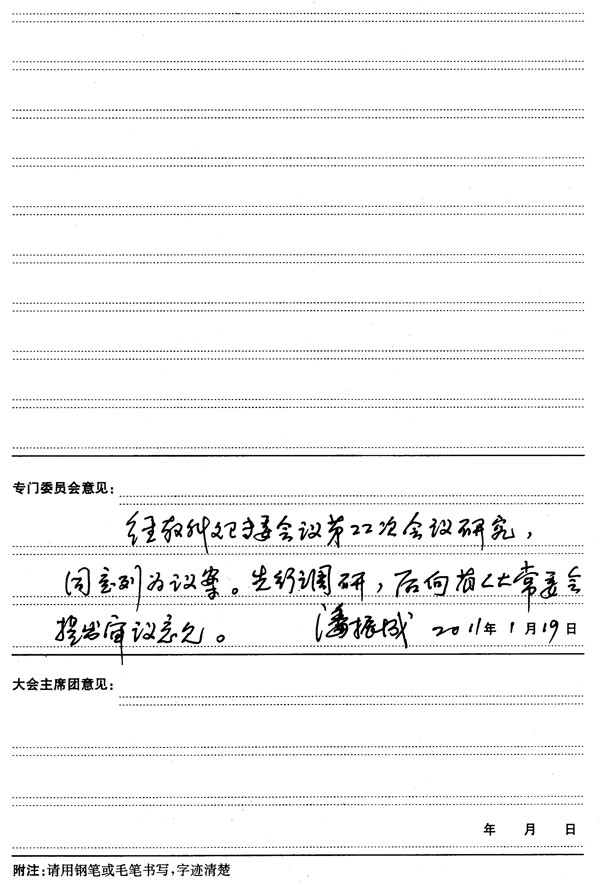 专门委员会意见：
经教科卫主委会议第22次会议研究，
同意列为议案。先行调研，后向省人大常委会
提出审议意见。 潘振成 2011年1月19日
大会主席团意见：
年 月 日
附注：请用钢笔或毛笔书写，字迹清楚